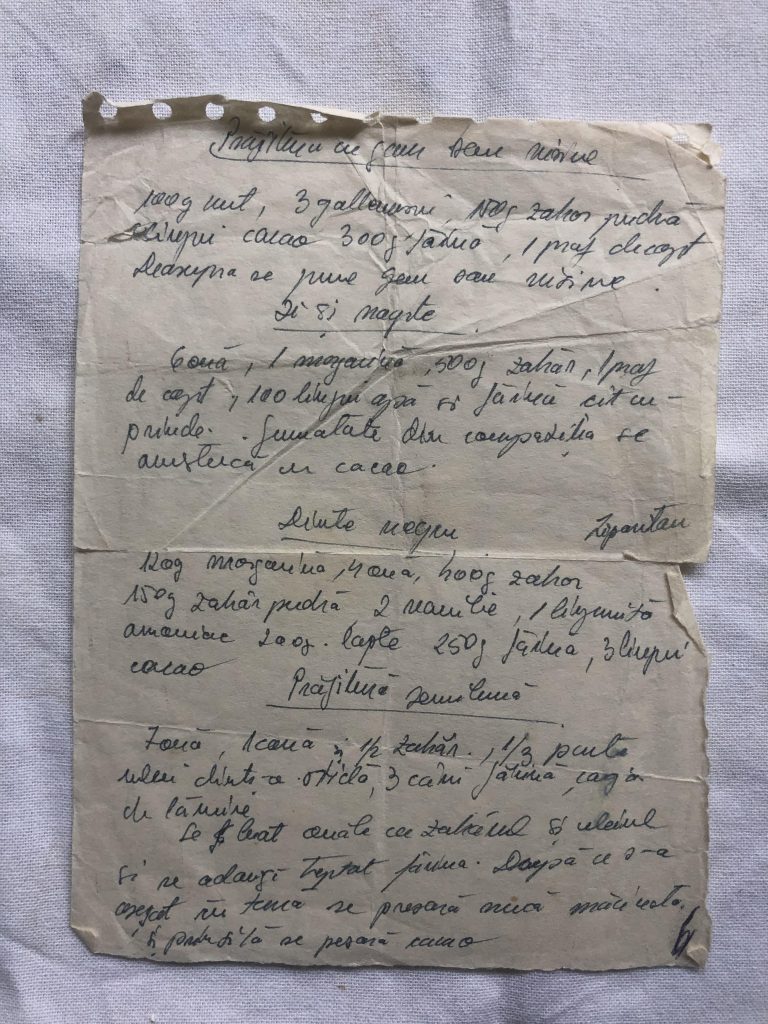 Prăjitura cu gem sau vișine
100g unt, 3 gălbenușuri, 150g zahar pudră
linguri cacao 300g făină, 1 praf de copt
Deasupra se pune gem sau vișine.
Zi și noapte
6 ouă, 1 margarină, 500g zahăr, 1 praf
de copt, 100 linguri apă și făină cît cu-
prinde. Jumatate din compoziția se
amestecă cu cacao.
Dinte negru
120g margarina, 4 ouă, 400g zahar
150g zahăr pudră 2 vanilie, 1 linguriță
amoniac 200g. lapte 250g făina, 3 linguri
cacao
Prăjitură semilună
7 ouă, 1 cană și 1/2 zahăr, 1/3 parte
ulei dintr-o sticlă, 3 căni făină, coaja
de lămîie
Se bat ouăle cu zahărul și uleiul
și se adaugă treptat făina. După ce s-a
așezat în tava se presară nucă măcinata.
și prin sită se presară cacao
6